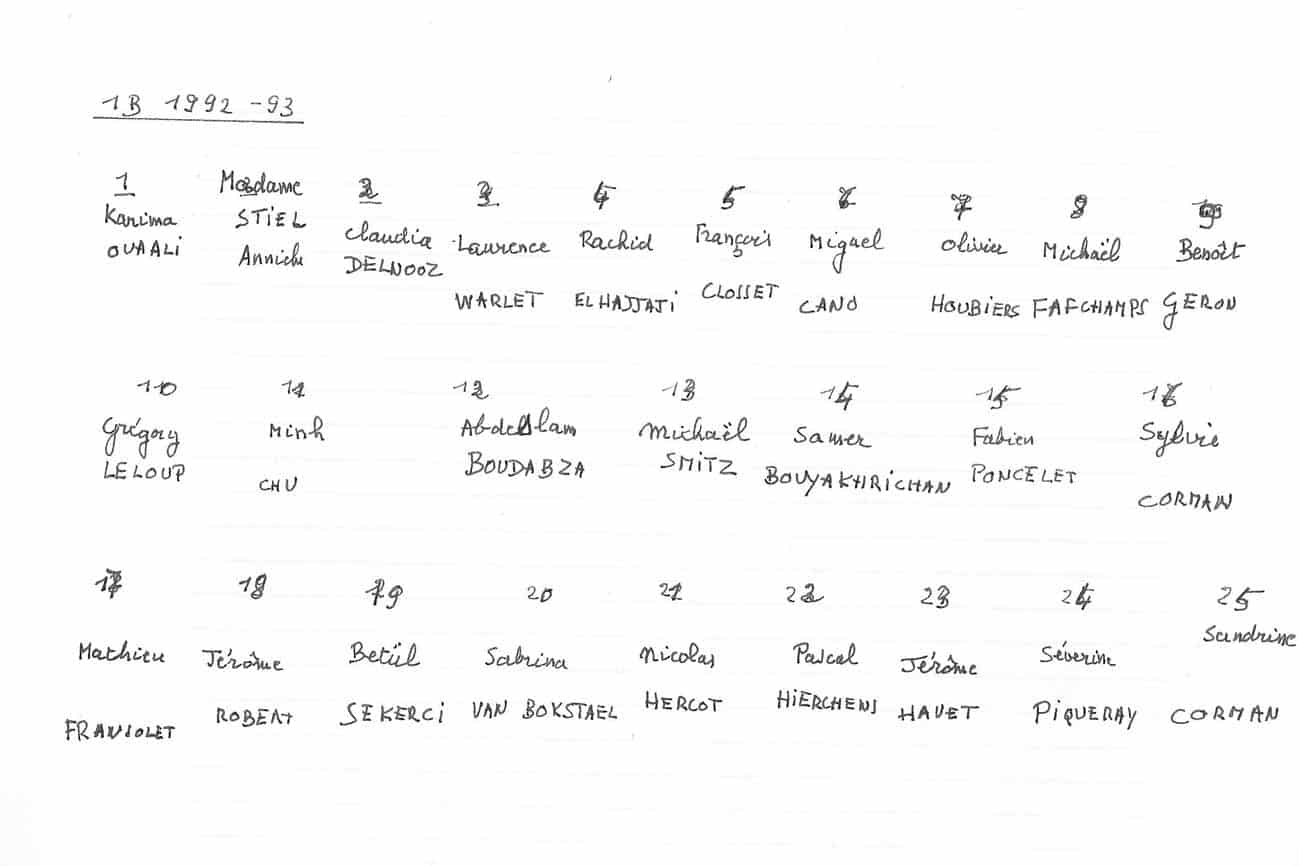 1B 1992-93
1 Madame 2 3 4 5 6 7 8 9
Karima STIEL Claudia Laurence Rachid François Miguel Olivier Michaël Benoît
OUAALI Annick DELNOOZ WARLET ELHAJJAJI CLOSSET CANO HOUBIERS FAFCHAMPS GERON
10 11 12 13 14 15 16
Grégory Minh Abdeslam Michaël Samer Fabien Sylvie
LELOUP CHU BOUDABZA SMITZ BOUYAKHRICHAN PONCELET CORMAN
17 18 19 20 21 22 23 24 25
Mathieu Jérôme Betül Sabrina Nicolas Pascal Jérôme Séverine Sandrine
ROBERT SEKERCI VAN BOKSTAEL HERCOT HIERCHENS HAVET PIQUERAY CORMAN